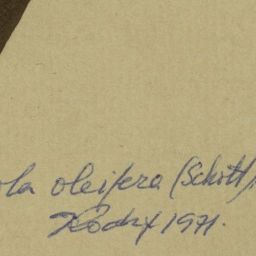 ola oleifera (Schott)
Kodyx 1971.